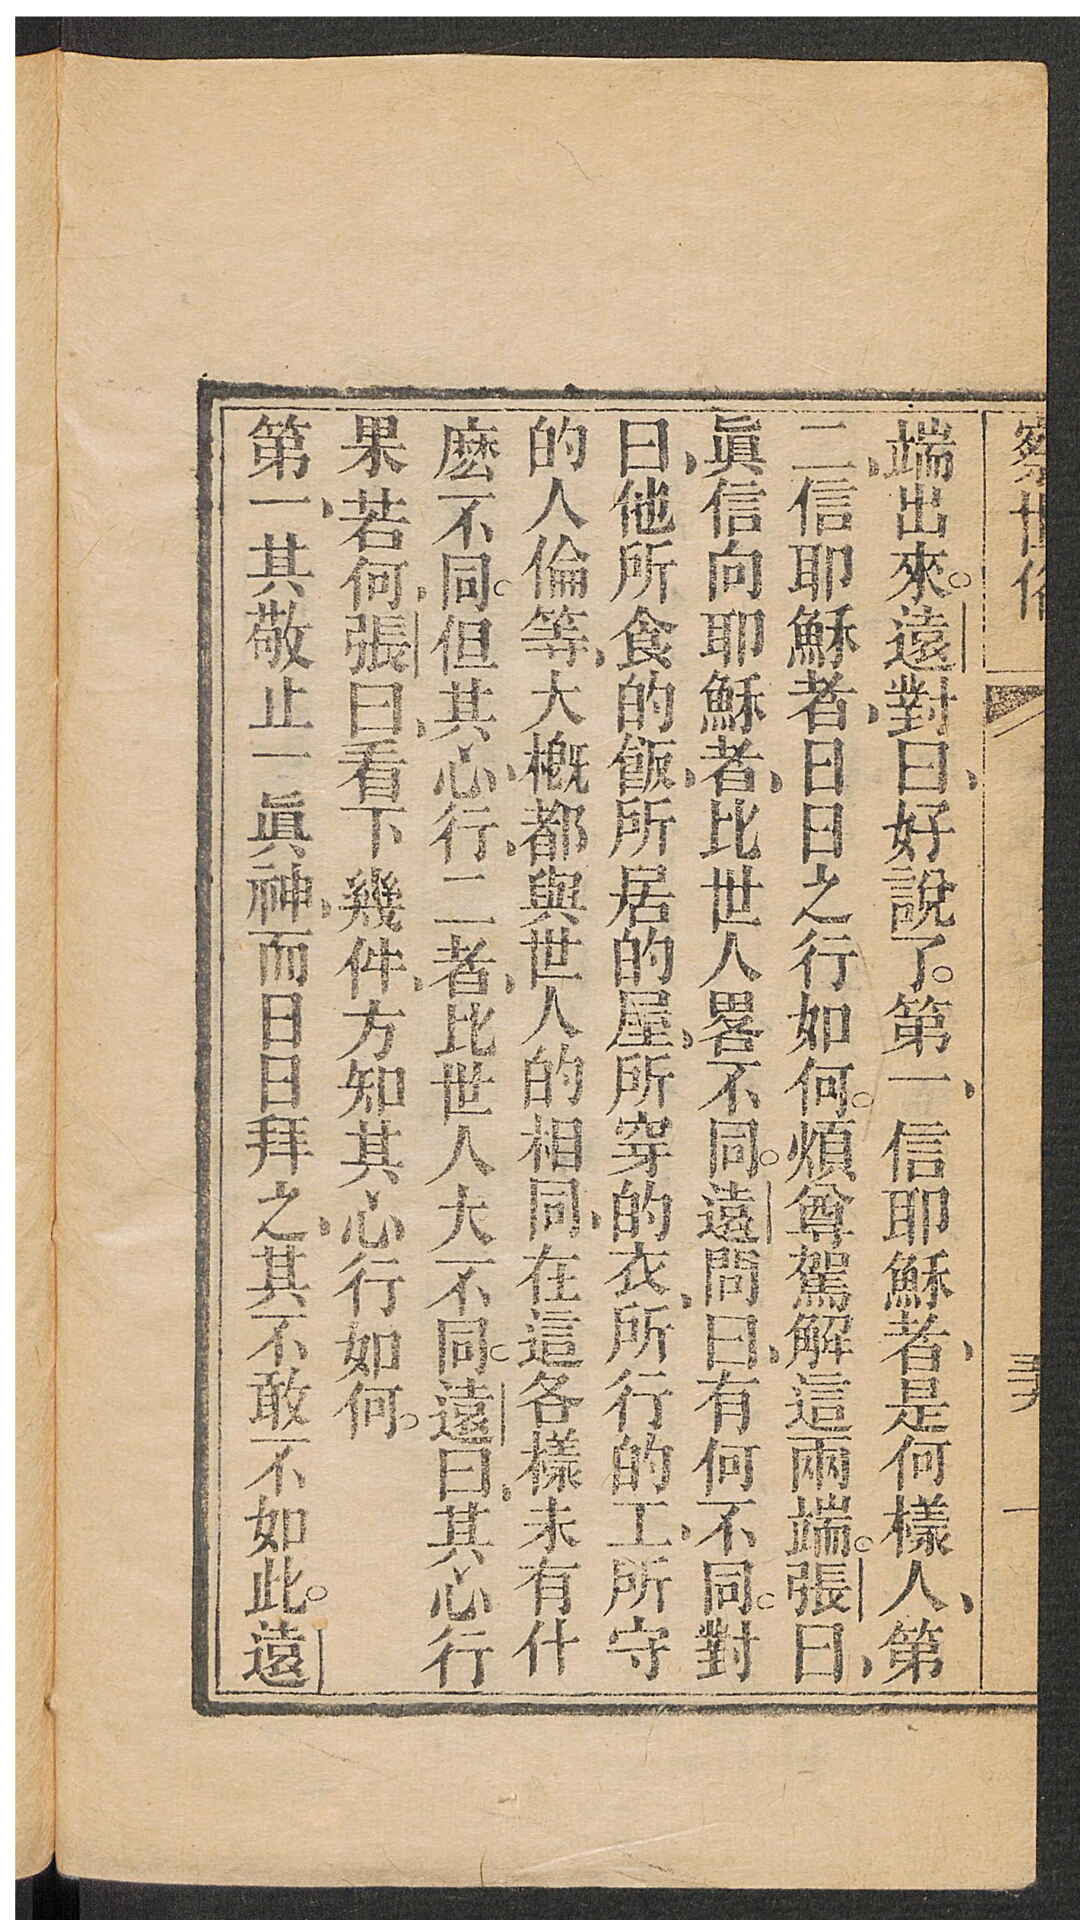 察世俗
端出來。遠對曰、好說了。第一、信耶穌者、是何樣人、第
二、信耶穌者、日日之行如何。煩尊駕解這兩端。張曰、
眞信向耶穌者、比世人畧不同。遠問曰、有何不同。對
曰、他所食的飯、所居的屋、所穿的衣、所行的工、所守
的人倫等、大槪都與世人的相同、在這各樣未有什
麽不同。但其心、行、二者、比世人大不同。遠曰、其心行
果若何、張曰、看下幾件、方知其心行如何。
第一、其敬止一眞神、而日日拜之、其不敢不如此。遠